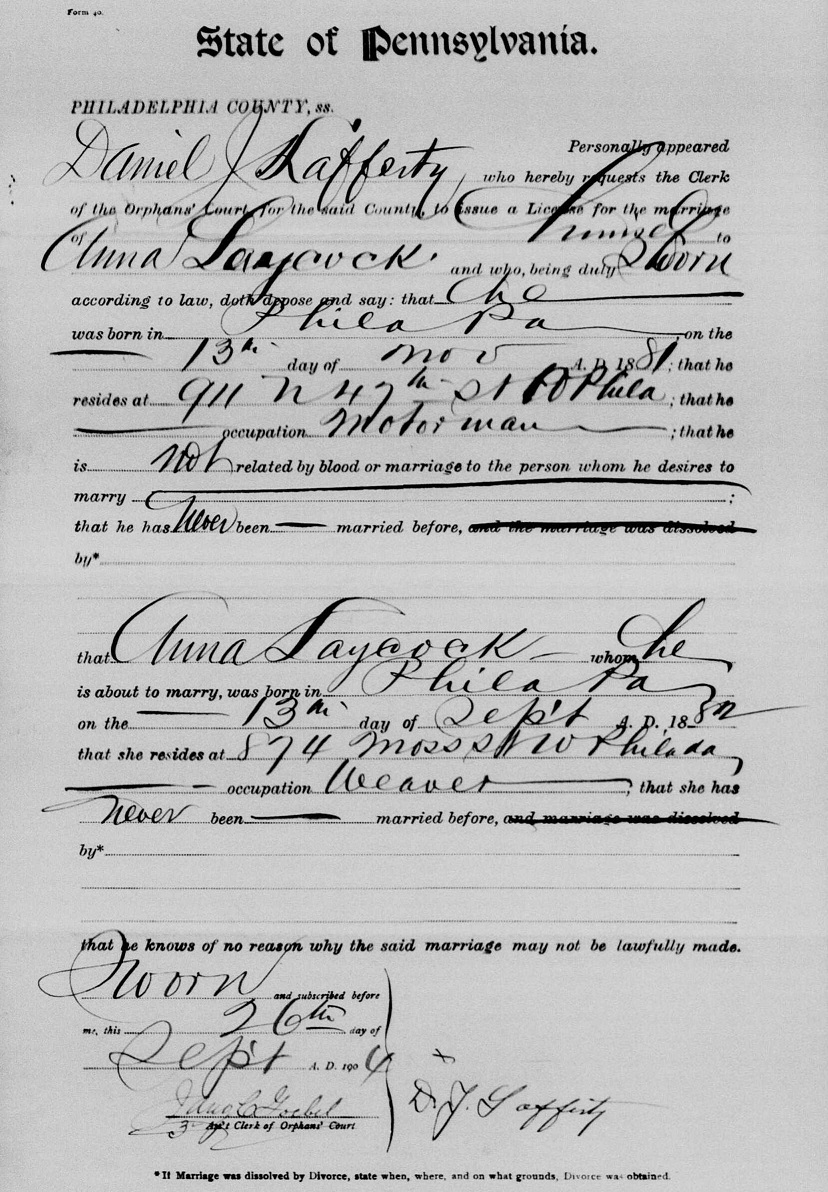 Form 40.
State of Pennsylvania.
PHILADELPHIA COUNTY, ss.
Personally appeared
Daniel J Lafferty, who hereby requests the Clerk
of the Orphans' Court, for the said County, to issue a License for the marriage
of himself to
Anna Laycock and who, being duly Sworn
according to law, doth depose and say: that he
was born in Phila Pa on the
13th day of Nov A. D. 1881; that he
resides at 911 N 47th St W Phila; that he
occupation Motorman; that he
is not related by blood or marriage to the person whom he desires to
marry ;
that he has Never been married before, and the marriage was dissolved
by*
that Anna Laycock whom he
is about to marry, was born in Phila Pa
on the 13th day of Sept A. D. 1882
that she resides at 874 Moss St W Philada,
occupation Weaver; that she has
never been married before, and marriage was dissolved
by*
that he knows of no reason why the said marriage may not be lawfully made.
Sworn and subscribed before
me, this 26th day of
Sept A. D. 1904
D. J. Lafferty
Ass't Clerk of Orphans' Court
*If Marriage was dissolved by Divorce, state when, where, and on what grounds, Divorce was obtained.